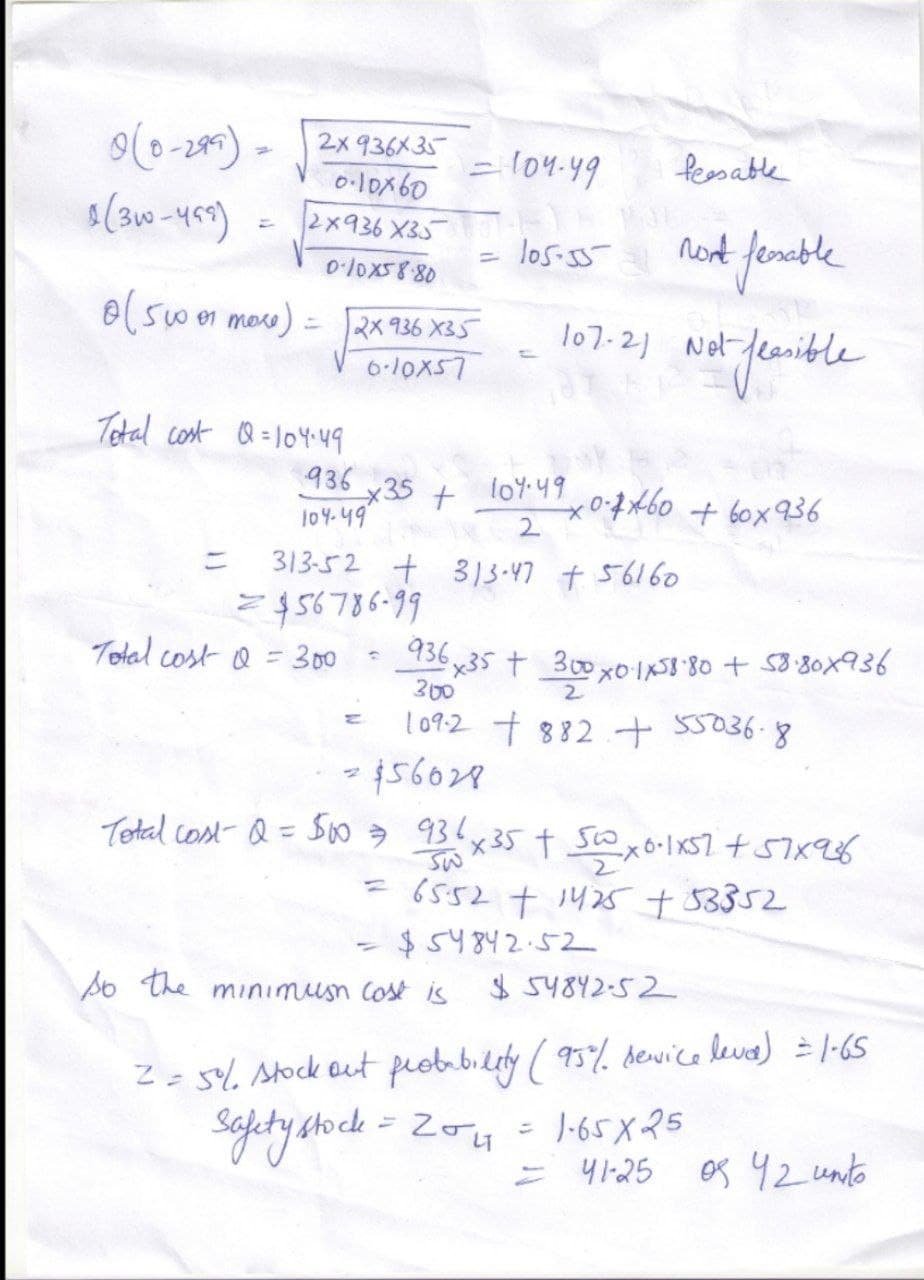 Q(0-299) = √(2×936×35 / 0.10×60) = 104.49 feasable
Q(300-499) = √(2×936×35 / 0.10×58.80) = 105.55 Nont feasable
Q(500 or more) = √(2×936×35 / 0.10×57) = 107.21 Not feasible
Total cost Q = 104.49
936/104.49 ×35 + 104.49/2 ×0.1×60 + 60×936
= 313.52 + 313.47 + 56160
= $56786.99
Total cost Q = 300 = 936/300 ×35 + 300/2 ×0.1×58.80 + 58.80×936
= 109.2 + 882 + 55036.8
= $56028
Total cost Q = 500 ⇒ 936/500 ×35 + 500/2 ×0.1×57 + 57×936
= 65.52 + 1425 + 53352
= $54842.52
so the minimum cost is $54842.52
Z = 5% stock out probability (95% service level) = 1.65
Safety stock = Zσ_LT = 1.65×25
= 41.25 or 42 units